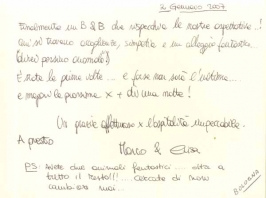 2 Gennaio 2007
Finalmente un B & B che rispecchia le nostre aspettative..!
Qui si trovano accoglienza, simpatia e un alloggio fantastico
(direi possiamo chiamarlo)
È stata la prima volta ... e forse non sarà l'ultima...
e magari la prossima x + di una notte!
Un grazie affettuoso x l'ospitalità impeccabile.
A presto
Marco & Elisa
PS: Avete due animali fantastici.... oltre a
tutto il resto!!... cercate di non
cambiare mai...
BOLOGNA